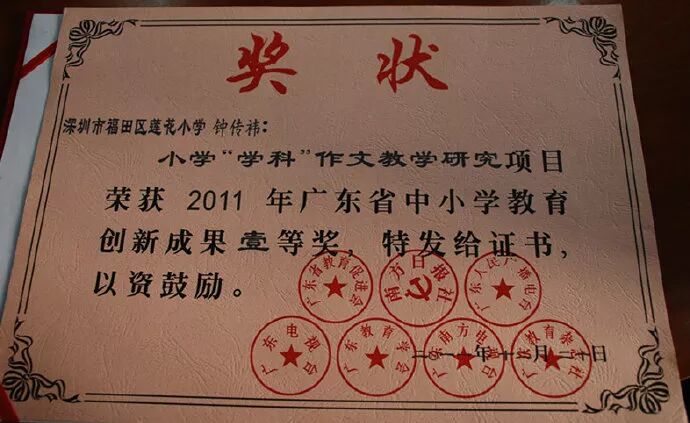 奖状
深圳市福田区莲花小学 钟传祎：
小学“学科”作文教学研究项目
荣获 2011 年广东省中小学教育
创新成果壹等奖，特发给证书，
以资鼓励。
广东省教育促进会
南方日报社
广东人民广播电台
广东电视台
广东教育学会
广东南方电视台
广东教育杂志社
二〇一一年十二月二十日